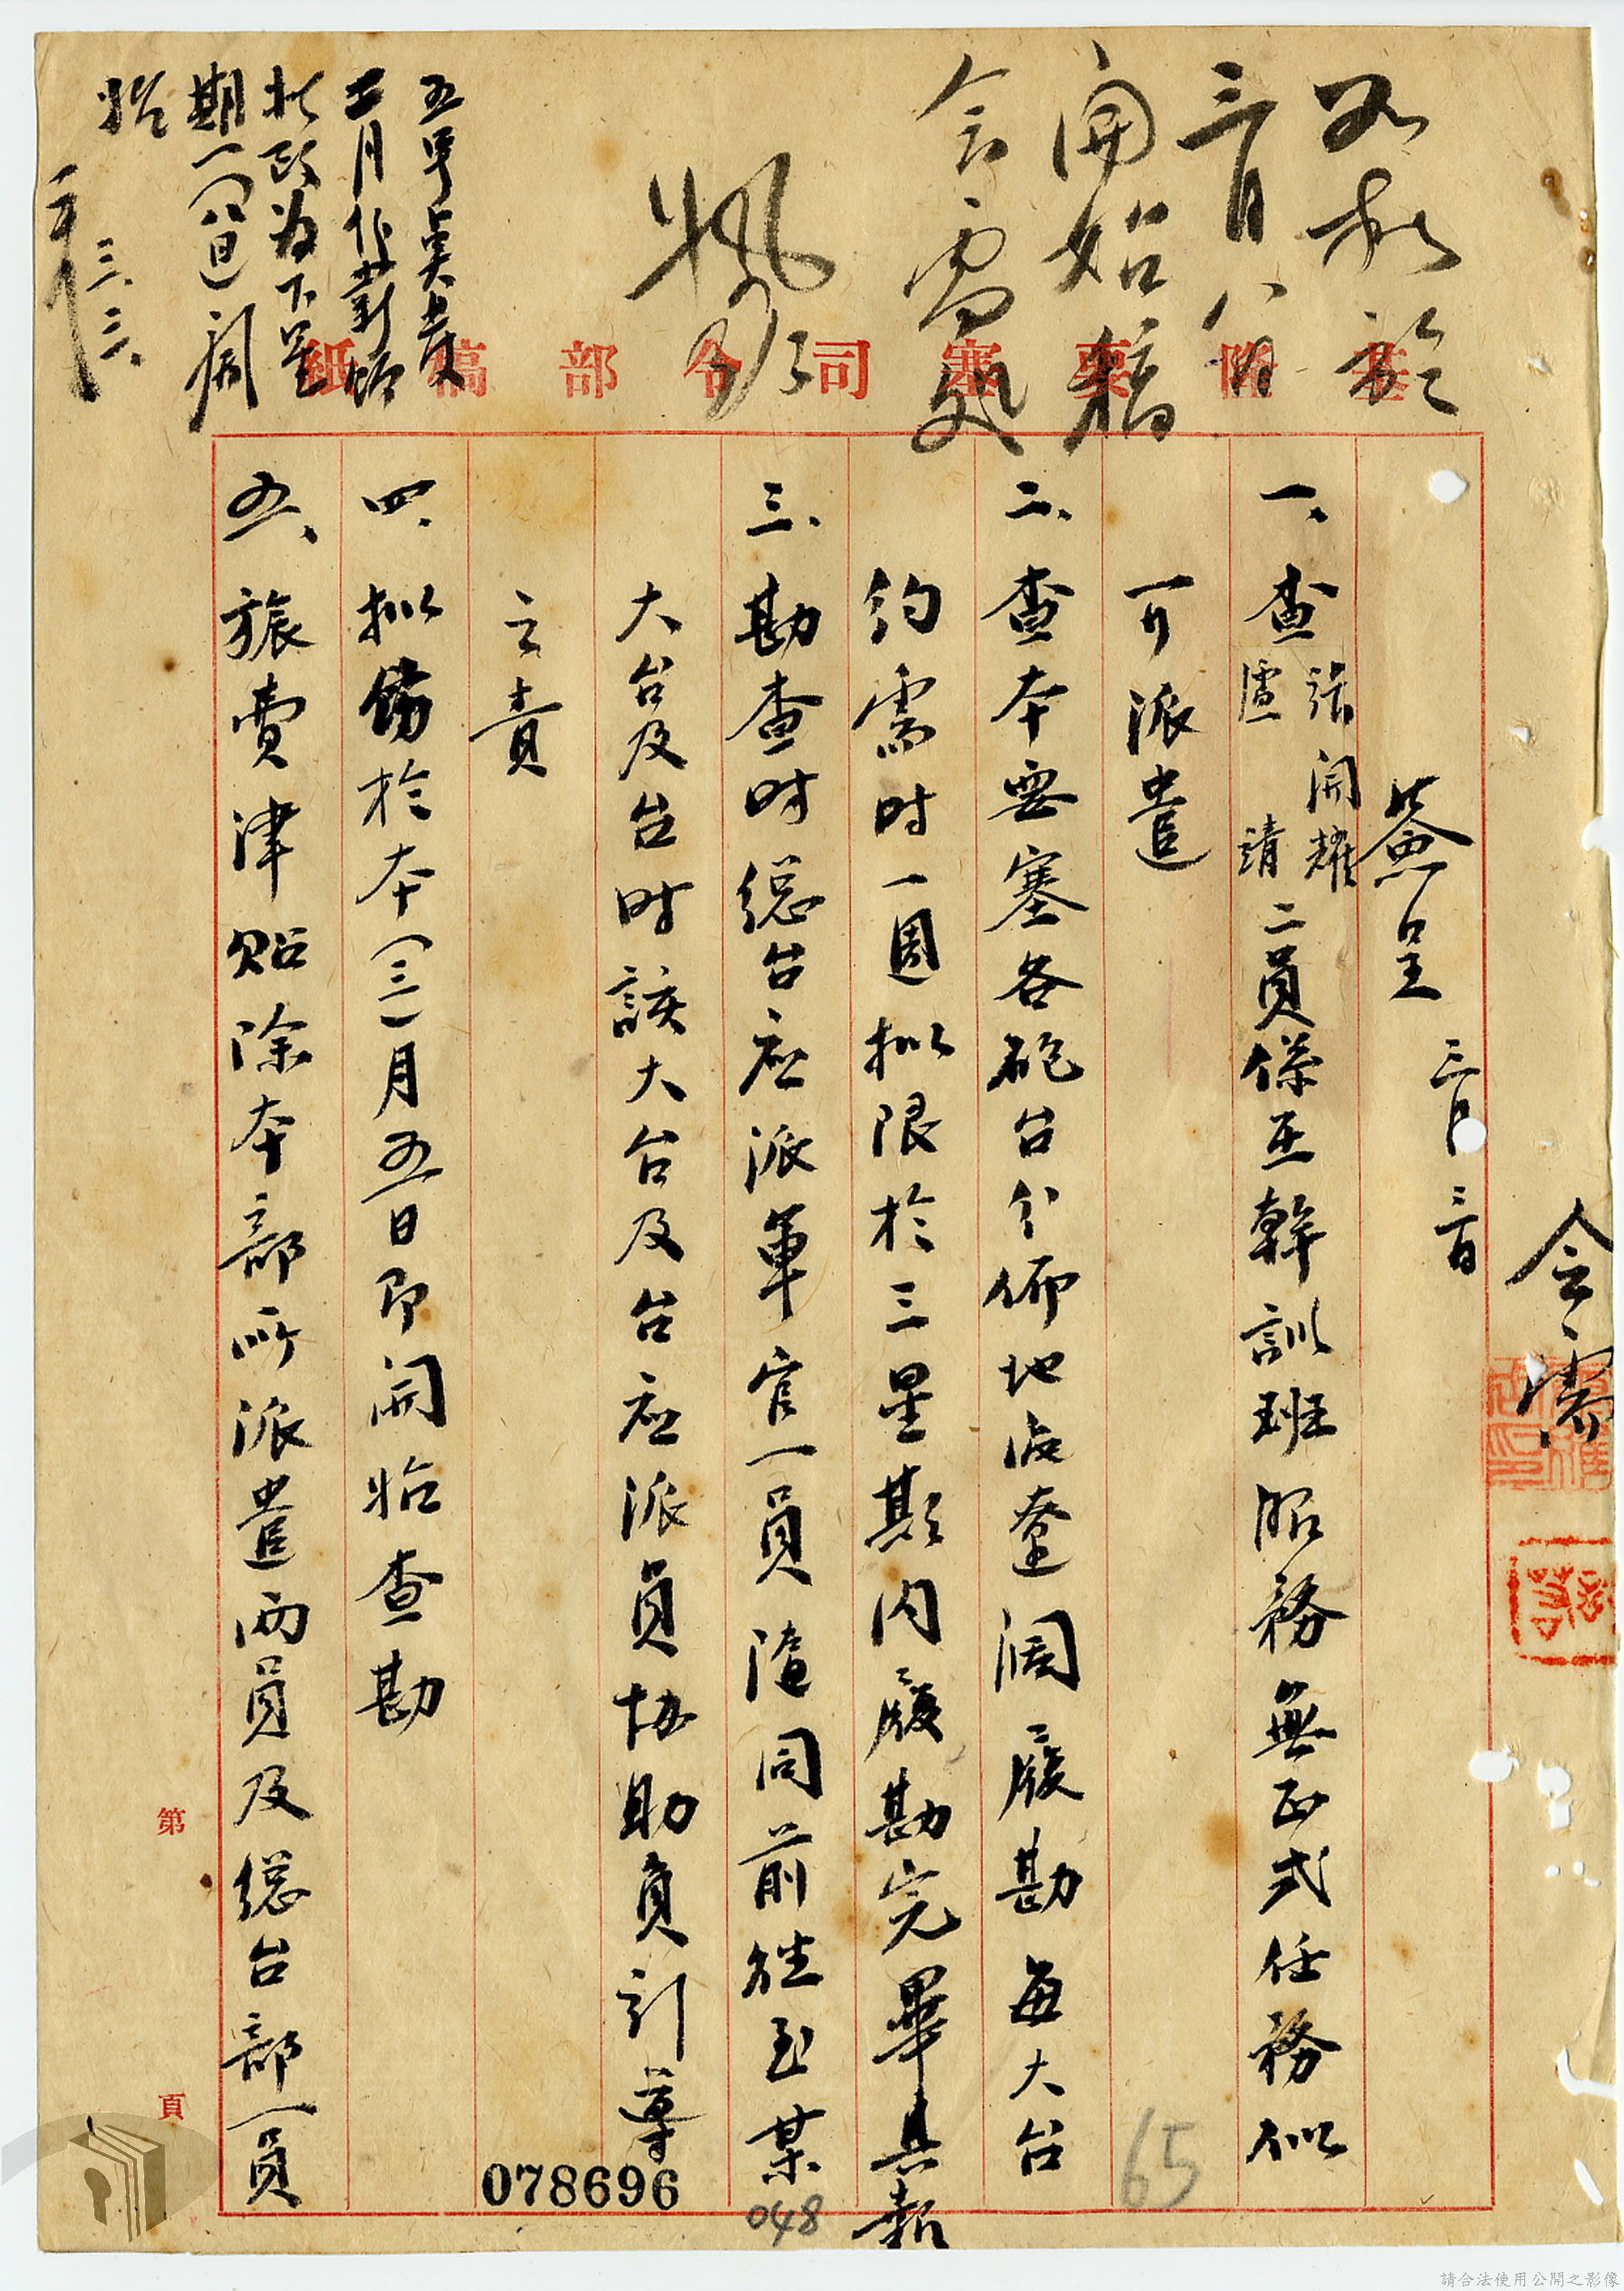 如擬於
三月八日
開始稽
會需處
五七月份
期(八日)開
始
三、三、
基隆要塞司令部稿紙
簽呈 三月三日
一、查張開耀
盧靖二員係至幹訓班服務無正式任務似
可派遣
二、查本要塞各砲台分佈地區遼闊履勘每大台
約需時一週擬限於三星期內履勘完畢具報
三、勘查時總台应派軍官一員隨同前往至某
大台及台時該大台及台应派員協助負引導
之責
四、擬飭於本(三)月五日即開始查勘
五、旅費津貼除本部所派遣兩員及總台部一員
第 頁
65
048
078696
請合法使用公開之影像